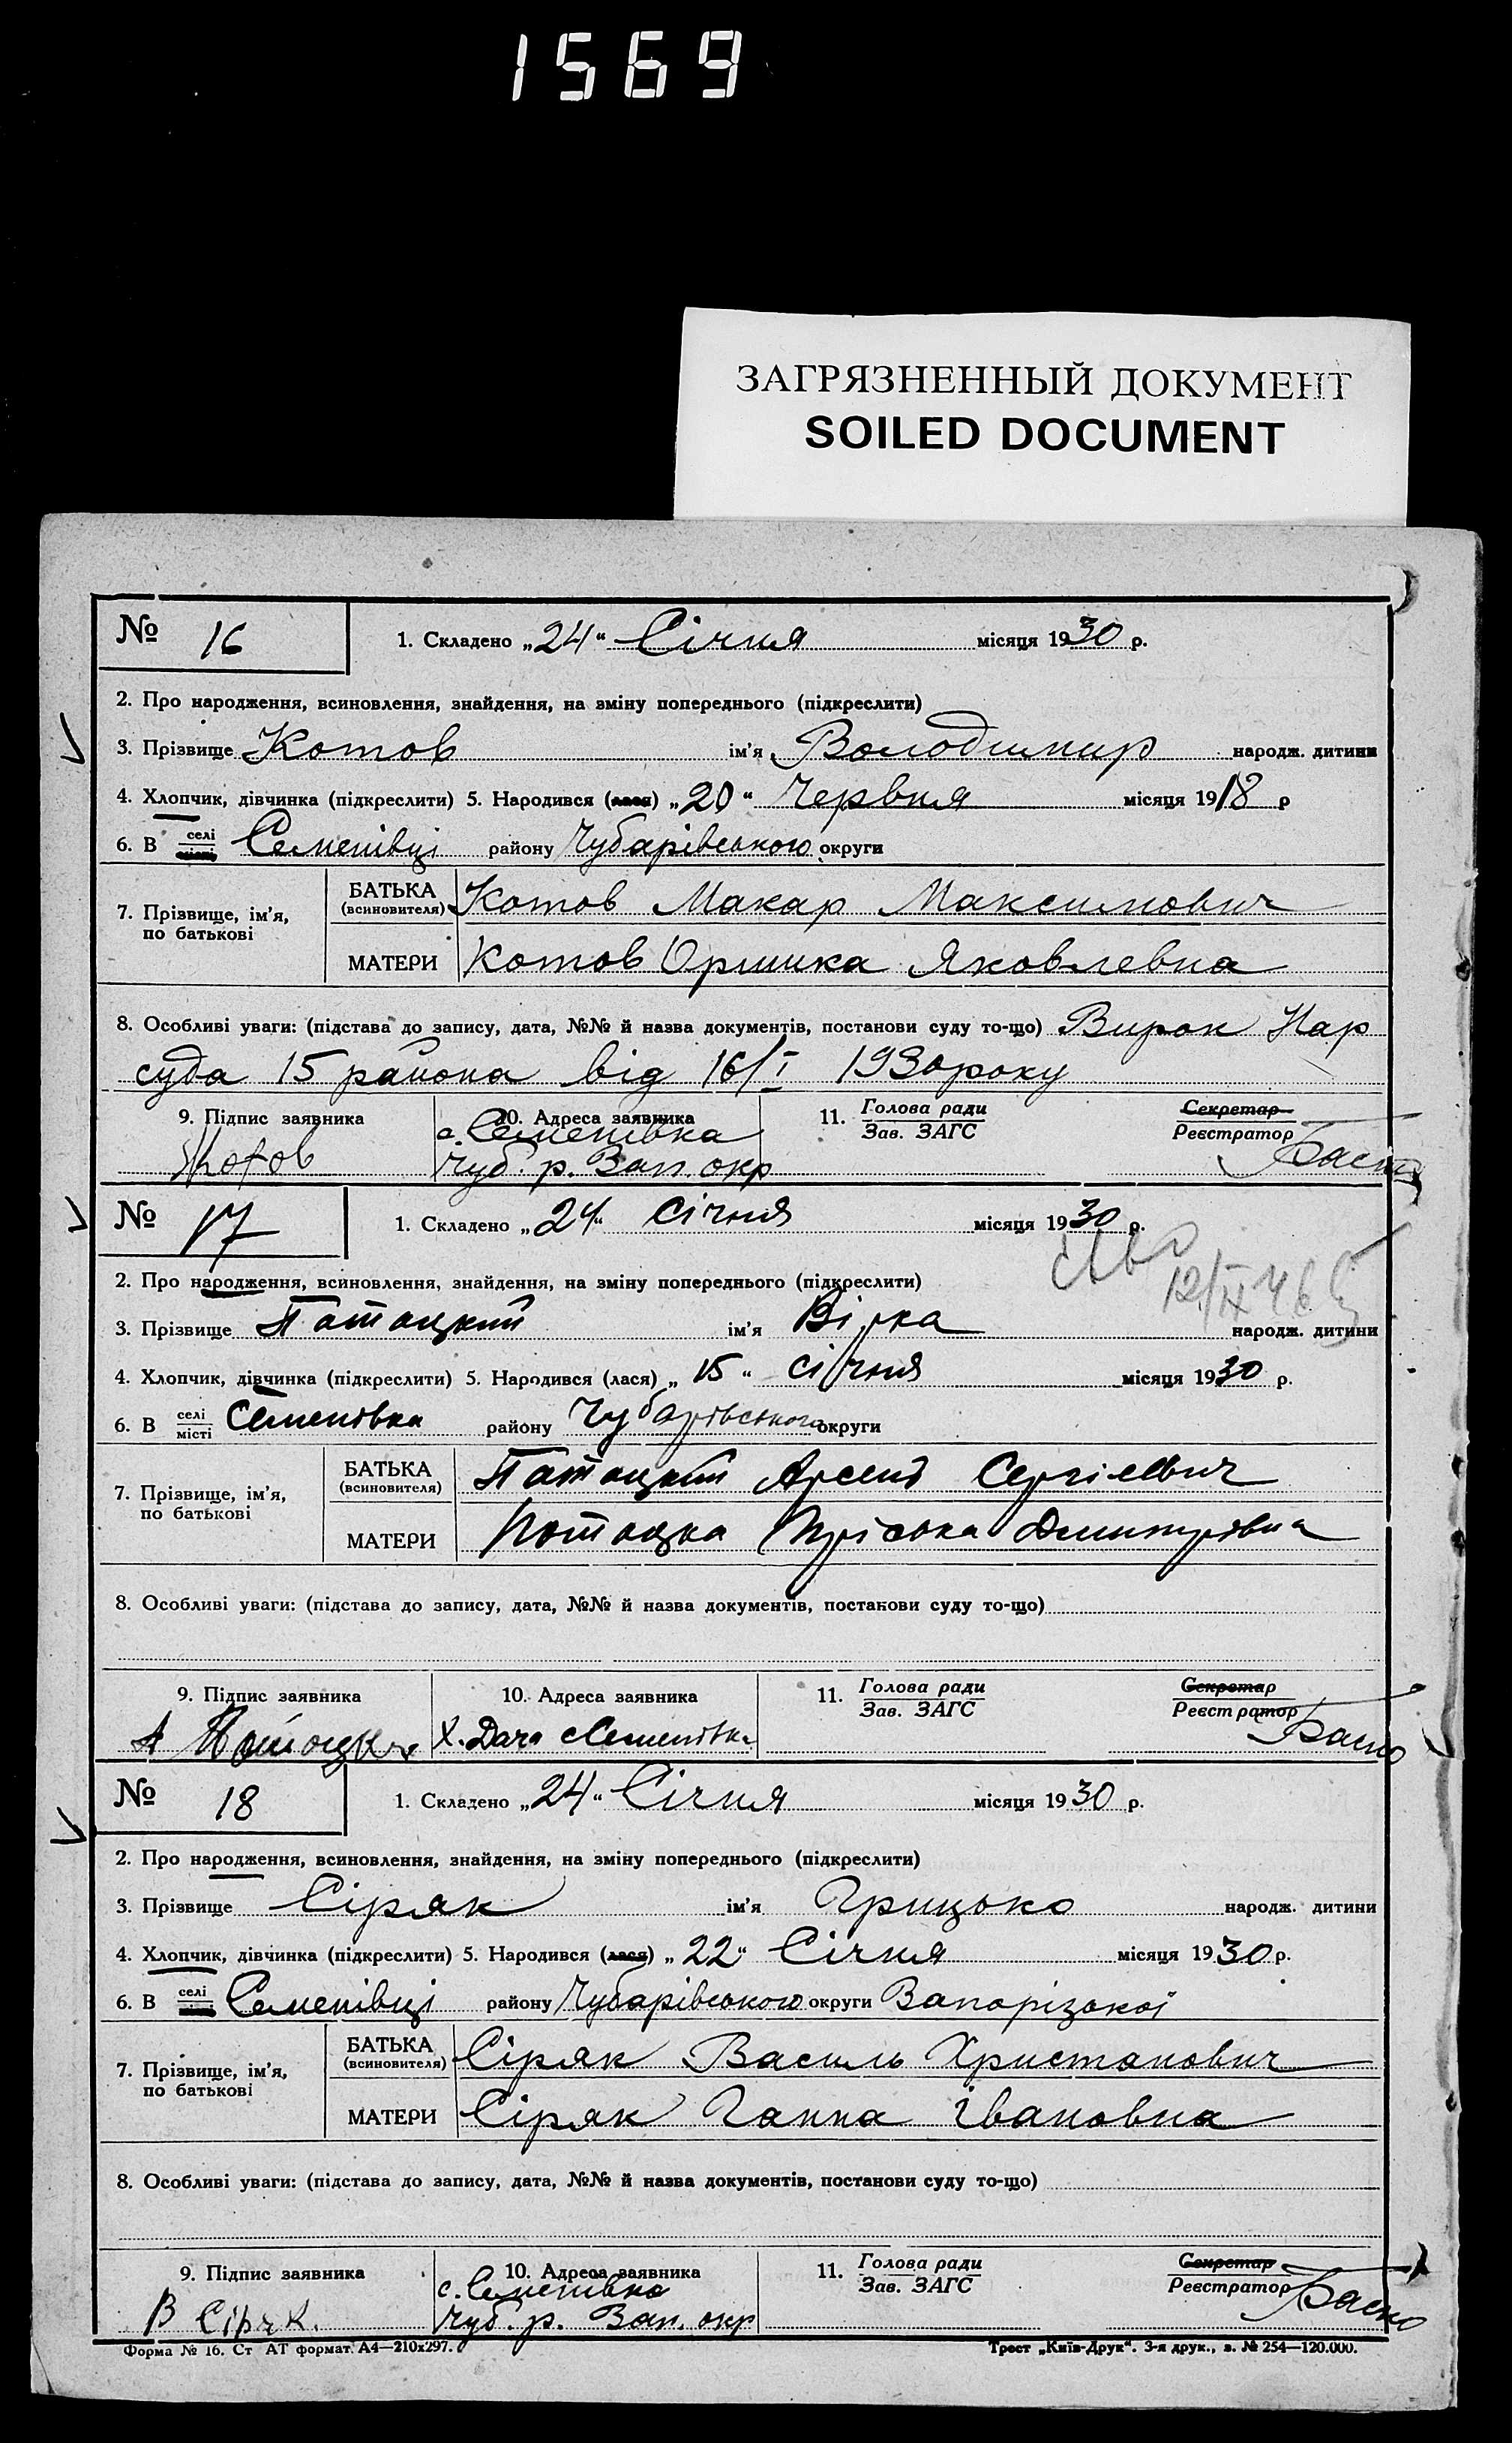 1569
ЗАГРЯЗНЕННЫЙ ДОКУМЕНТ
SOILED DOCUMENT
№ 16
1. Складено „24“ Січня місяця 1930 р.
2. Про народження, всиновлення, знайдення, на зміну попереднього (підкреслити)
3. Прізвище Котов ім'я Володимир народж. дитини
4. Хлопчик, дівчинка (підкреслити) 5. Народився (лася) „20“ Червня місяця 1918 р
6. В селі Семенівці району Чубарівського округи
7. Прізвище, ім'я, по батькові
БАТЬКА (всиновителя) Котов Макар Максимович
МАТЕРИ Котов Оришка Яковлевна
8. Особливі уваги: (підстава до запису, дата, №№ й назва документів, постанови суду то-що) Вирок Нар
суда 15 района від 16/I 1930 року
9. Підпис заявника 10. Адреса заявника 11. Голова ради Секретар
Зав. ЗАГС Реєстратор
с. Семенівка
Котов Чуб. р. Зап. окр
№ 17
1. Складено „24“ Січня місяця 1930 р.
2. Про народження, всиновлення, знайдення, на зміну попереднього (підкреслити)
3. Прізвище Патацкий ім'я Вірка народж. дитини
4. Хлопчик, дівчинка (підкреслити) 5. Народився (лася) „15“ січня місяця 1930 р.
6. В селі місті Семенівка району Чубарівського округи
7. Прізвище, ім'я, по батькові
БАТЬКА (всиновителя) Патацкий Арсений Сергієвич
МАТЕРИ Потацка Пріська Дмитрівна
8. Особливі уваги: (підстава до запису, дата, №№ й назва документів, постанови суду то-що)
9. Підпис заявника 10. Адреса заявника 11. Голова ради Секретар
Зав. ЗАГС Реєстратор
А Х. Дача Семенівка
№ 18
1. Складено „24“ Січня місяця 1930 р.
2. Про народження, всиновлення, знайдення, на зміну попереднього (підкреслити)
3. Прізвище Сіряк ім'я Грицько народж. дитини
4. Хлопчик, дівчинка (підкреслити) 5. Народився (лася) „22“ Січня місяця 1930 р.
6. В селі Семенівці району Чубарівського округи Запорізької
7. Прізвище, ім'я, по батькові
БАТЬКА (всиновителя) Сіряк Василь Христанович
МАТЕРИ Сіряк Ганна Івановна
8. Особливі уваги: (підстава до запису, дата, №№ й назва документів, постанови суду то-що)
9. Підпис заявника 10. Адреса заявника 11. Голова ради Секретар
Зав. ЗАГС Реєстратор
с. Семенівка
В Сіряк. Чуб. р. Зап. окр
Форма № 16. Ст АТ формат. А4—210х297. Трест „Київ-Друк“. 3-я друк., з. № 254—120.000.